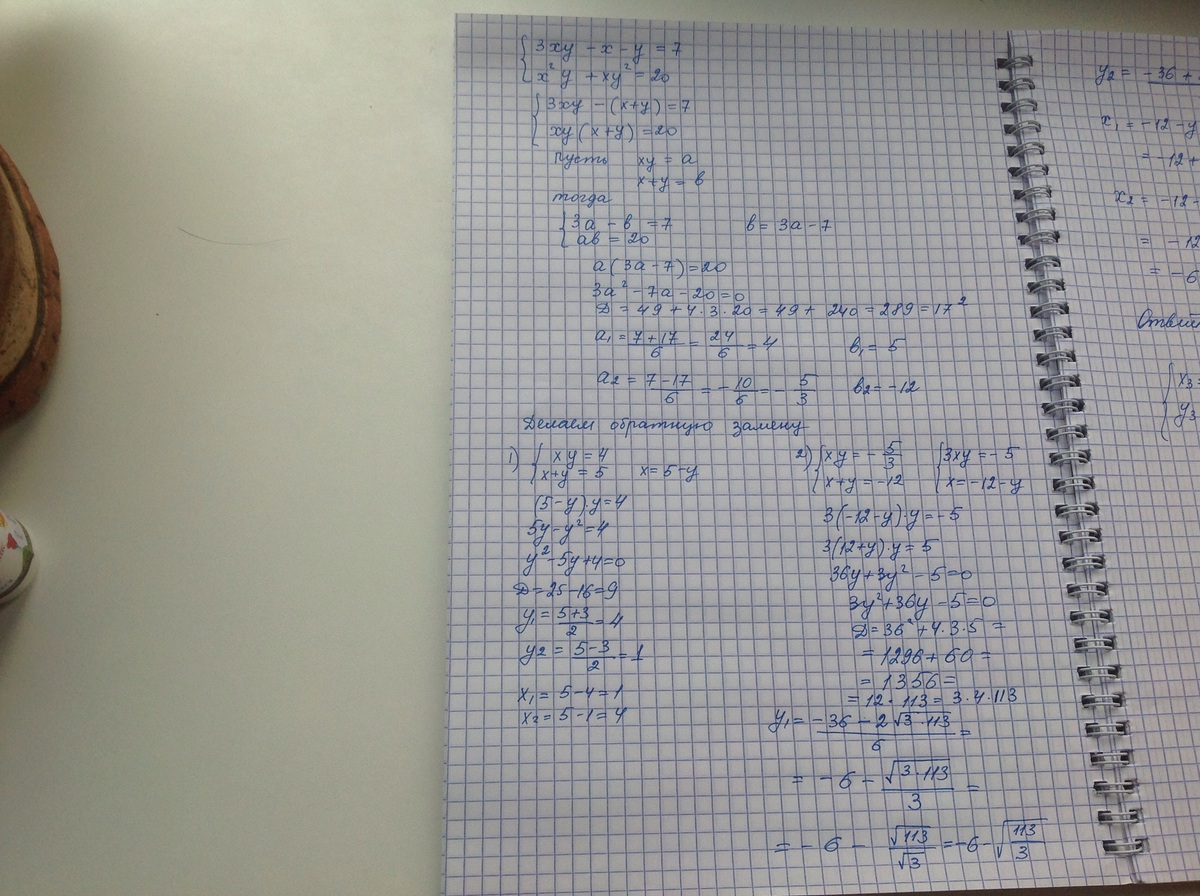 3xy - x - y = 7
x²y + xy² = 20
3xy - (x+y) = 7
xy(x+y) = 20
Пусть xy = a
x+y = в
тогда
3a - в = 7 в = 3a - 7
aв = 20
a(3a-7) = 20
3a² - 7a - 20 = 0
D = 49 + 4·3·20 = 49 + 240 = 289 = 17²
a₁ = (7+17)/6 = 24/6 = 4 в₁ = 5
a₂ = (7-17)/6 = -10/6 = -5/3 в₂ = -12
Делаем обратную замену
1) { xy = 4
x+y = 5 x = 5-y
(5-y)·y = 4
5y - y² = 4
y² - 5y + 4 = 0
D = 25 - 16 = 9
y₁ = (5+3)/2 = 4
y₂ = (5-3)/2 = 1
x₁ = 5-4 = 1
x₂ = 5-1 = 4
2) { xy = -5/3 { 3xy = -5
x+y = -12 x = -12-y
3(-12-y)·y = -5
3(12+y)·y = 5
36y + 3y² - 5 = 0
3y² + 36y - 5 = 0
D = 36² + 4·3·5 =
= 1296 + 60 =
= 1356 =
= 12·113 = 3·4·113
y₁ = (-36 - 2√3·113)/6 =
= -6 - √3·113/3 =
= -6 - √113/√3 = -6 - √113/3
y₂ = -36 +
x₁ = -12 - y
= -12 +
x₂ = -12 -
= -12
= -6
x₃ =
y₃